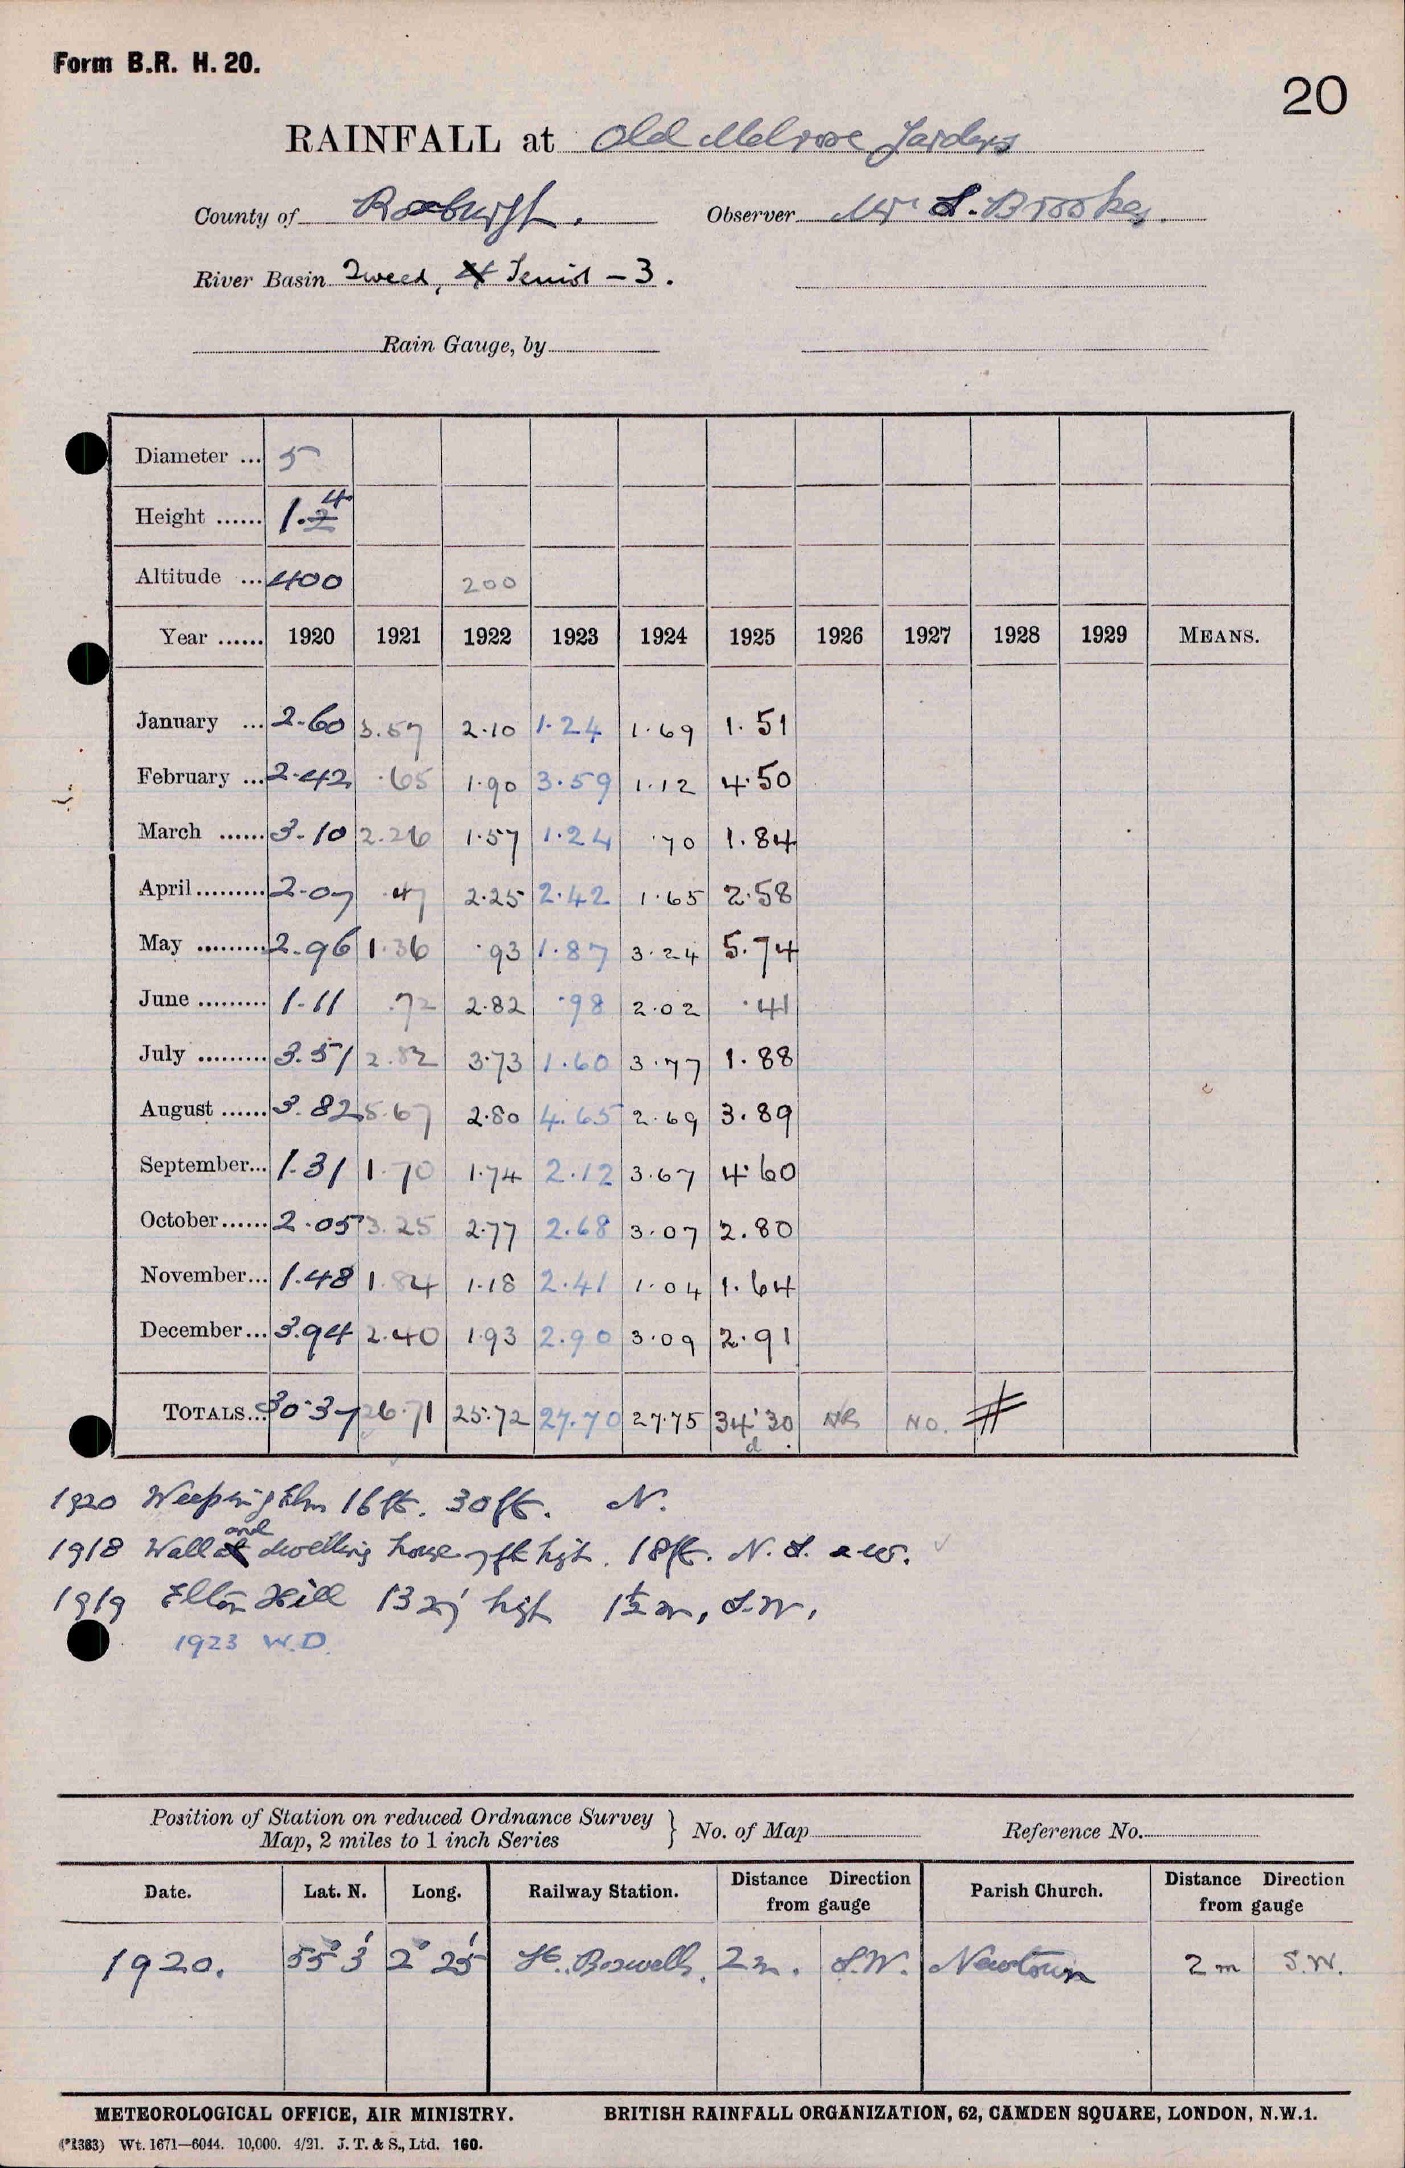 Form B.R. H. 20.
20
RAINFALL at Old Melrose Gardens
County of Roxburgh. Observer Mr S. Brookes.
River Basin Tweed, Teviot - 3.
Rain Gauge, by
Diameter ... 5
Height ...... 1.4
Altitude ... 400 200
Year ...... 1920 1921 1922 1923 1924 1925 1926 1927 1928 1929 MEANS.
January ... 2.60 3.57 2.10 1.24 1.69 1.51
February ... 2.42 .65 1.90 3.59 1.12 4.50
March ...... 3.10 2.26 1.57 1.24 .70 1.84
April ......... 2.07 .47 2.25 2.42 1.65 2.58
May ......... 2.96 1.36 .93 1.87 3.24 5.74
June ......... 1.11 .72 2.82 .98 2.02 .41
July ......... 3.51 2.82 3.73 1.60 3.77 1.88
August ...... 3.82 5.67 2.80 4.65 2.69 3.89
September... 1.31 1.70 1.74 2.12 3.67 4.60
October ...... 2.05 3.25 2.77 2.68 3.07 2.80
November... 1.48 1.84 1.18 2.41 1.04 1.64
December... 3.94 2.40 1.93 2.90 3.09 2.91
TOTALS... 30.37 26.71 25.72 27.70 27.75 34.30 NR NO. #
d
1920 Weeping Elm 16ft. 30ft. N.
1918 Wall and dwelling house 7ft high. 18ft. N. S. & W.
1919 Hill high 1½ m, S.W.
1923 W.D.
Position of Station on reduced Ordnance Survey
Map, 2 miles to 1 inch Series } No. of Map Reference No.
Date. Lat. N. Long. Railway Station. Distance Direction from gauge Parish Church. Distance Direction from gauge
1920. 55° 3' 2° 25' St. Boswells. 2 m. S.W. Newtown 2 m S.W.
METEOROLOGICAL OFFICE, AIR MINISTRY. BRITISH RAINFALL ORGANIZATION, 62, CAMDEN SQUARE, LONDON, N.W.1.
(*1383) Wt. 1671—6044. 10,000. 4/21. J. T. & S., Ltd. 160.